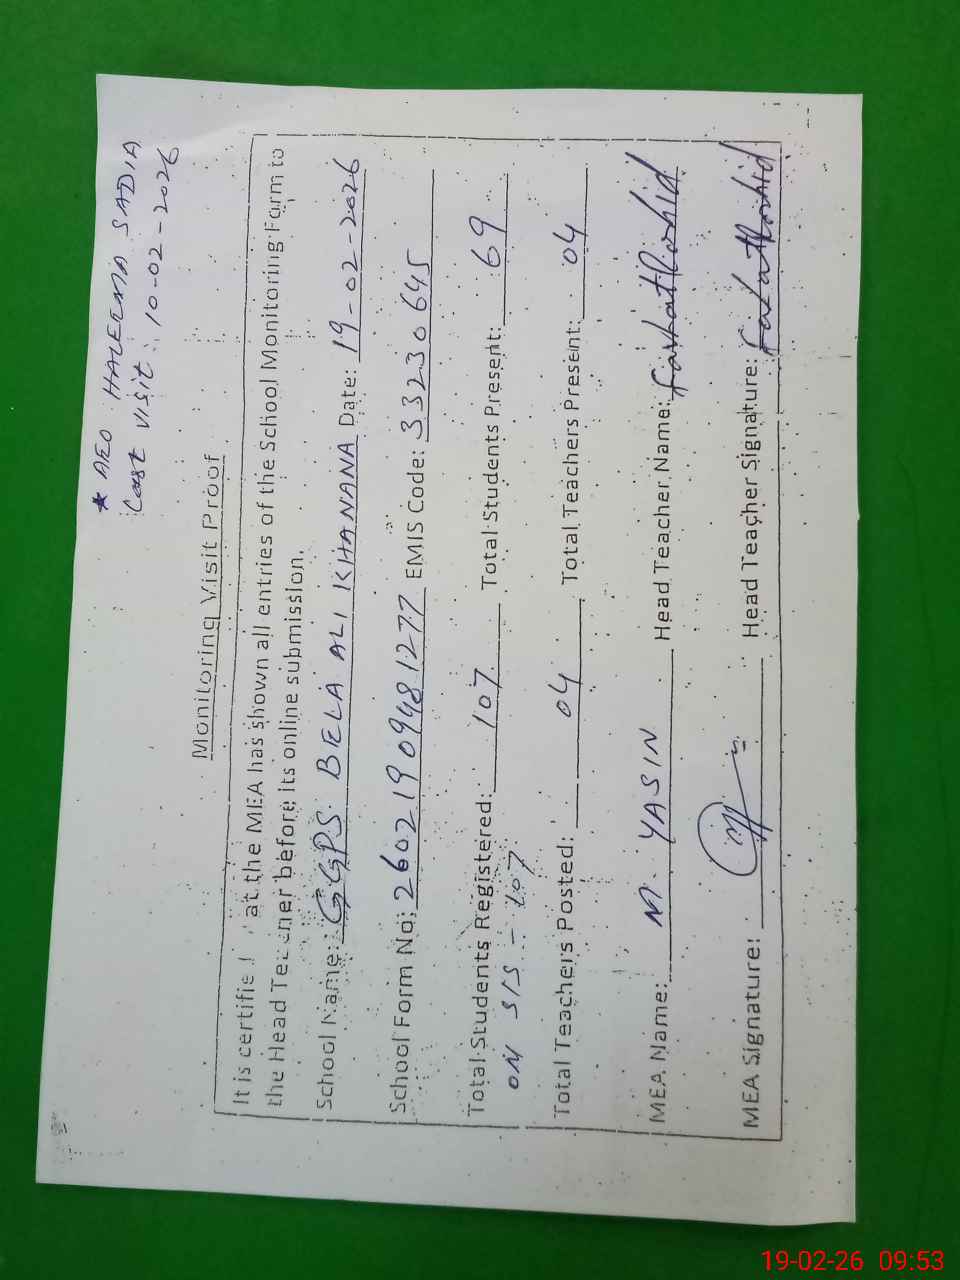 * AEO HALEEMA SADIA
Last visit: 10-02-2026
Monitoring Visit Proof
It is certifie at the MEA has shown all entries of the School Monitoring Form to
the Head Teacher before its online submission.
School Name: GGPS BELA ALI KHANANA Date: 19-02-2026
School Form No: 26021909481277 EMIS Code: 33230645
Total Students Registered: 107 Total Students Present: 69
ON SIS - 107
Total Teachers Posted: 04 Total Teachers Present: 04
MEA Name: M. YASIN Head Teacher Name:
MEA Signature: Head Teacher Signature:
19-02-26 09:53